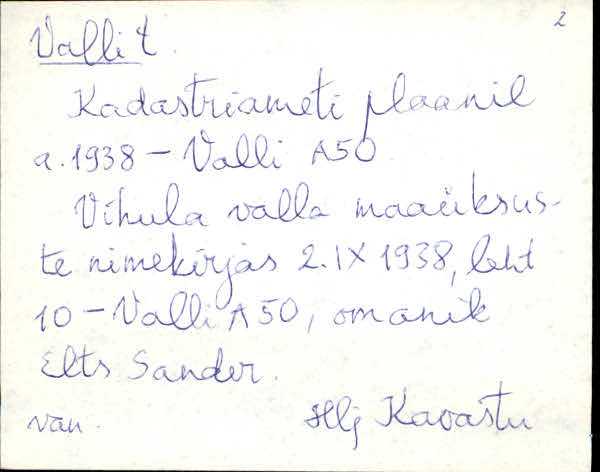 2
Valli t.
Kadastriameti plaanil
a. 1938 – Valli A50
Vihula valla maaüksus-
te nimekirjas 2.IX 1938, leht
10 – Valli A50, omanik
Elts Sander.
van. Hlj Kavastu